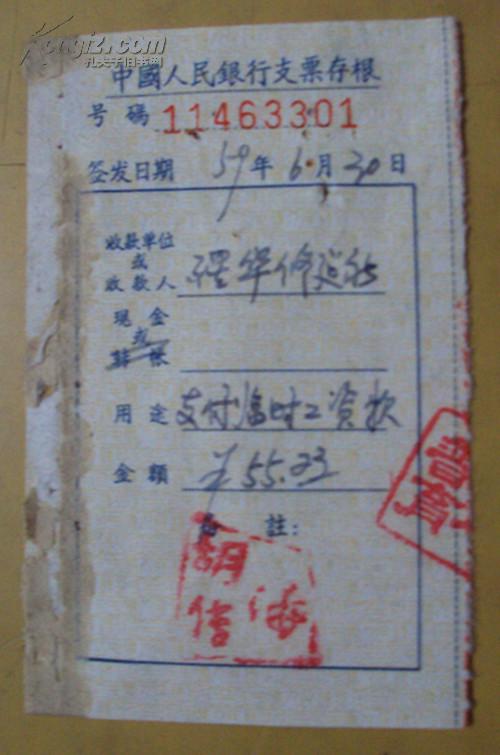 kongfz.com
孔夫子旧书网
中國人民銀行支票存根
号碼 11463301
签发日期 59年6月30日
收款单位
或
收款人
现金
或
轉帳
用途 支付临时工资款
金額 ￥55.23
备註：
胡